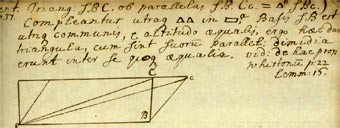 Triang: SBC, ob parallelas SB. Cc. = Δ SBc.)
Compleantur utraq ΔΔ in Basis SB est
utriq communis, & altitudo æqualis, ergo hæc duo
triangula, cum sint suorũ parallel: dimidia
erunt inter se quoq æqualia. vid: de hac prop
Whistonũ p: 22
Lemm: 15.
C c
B